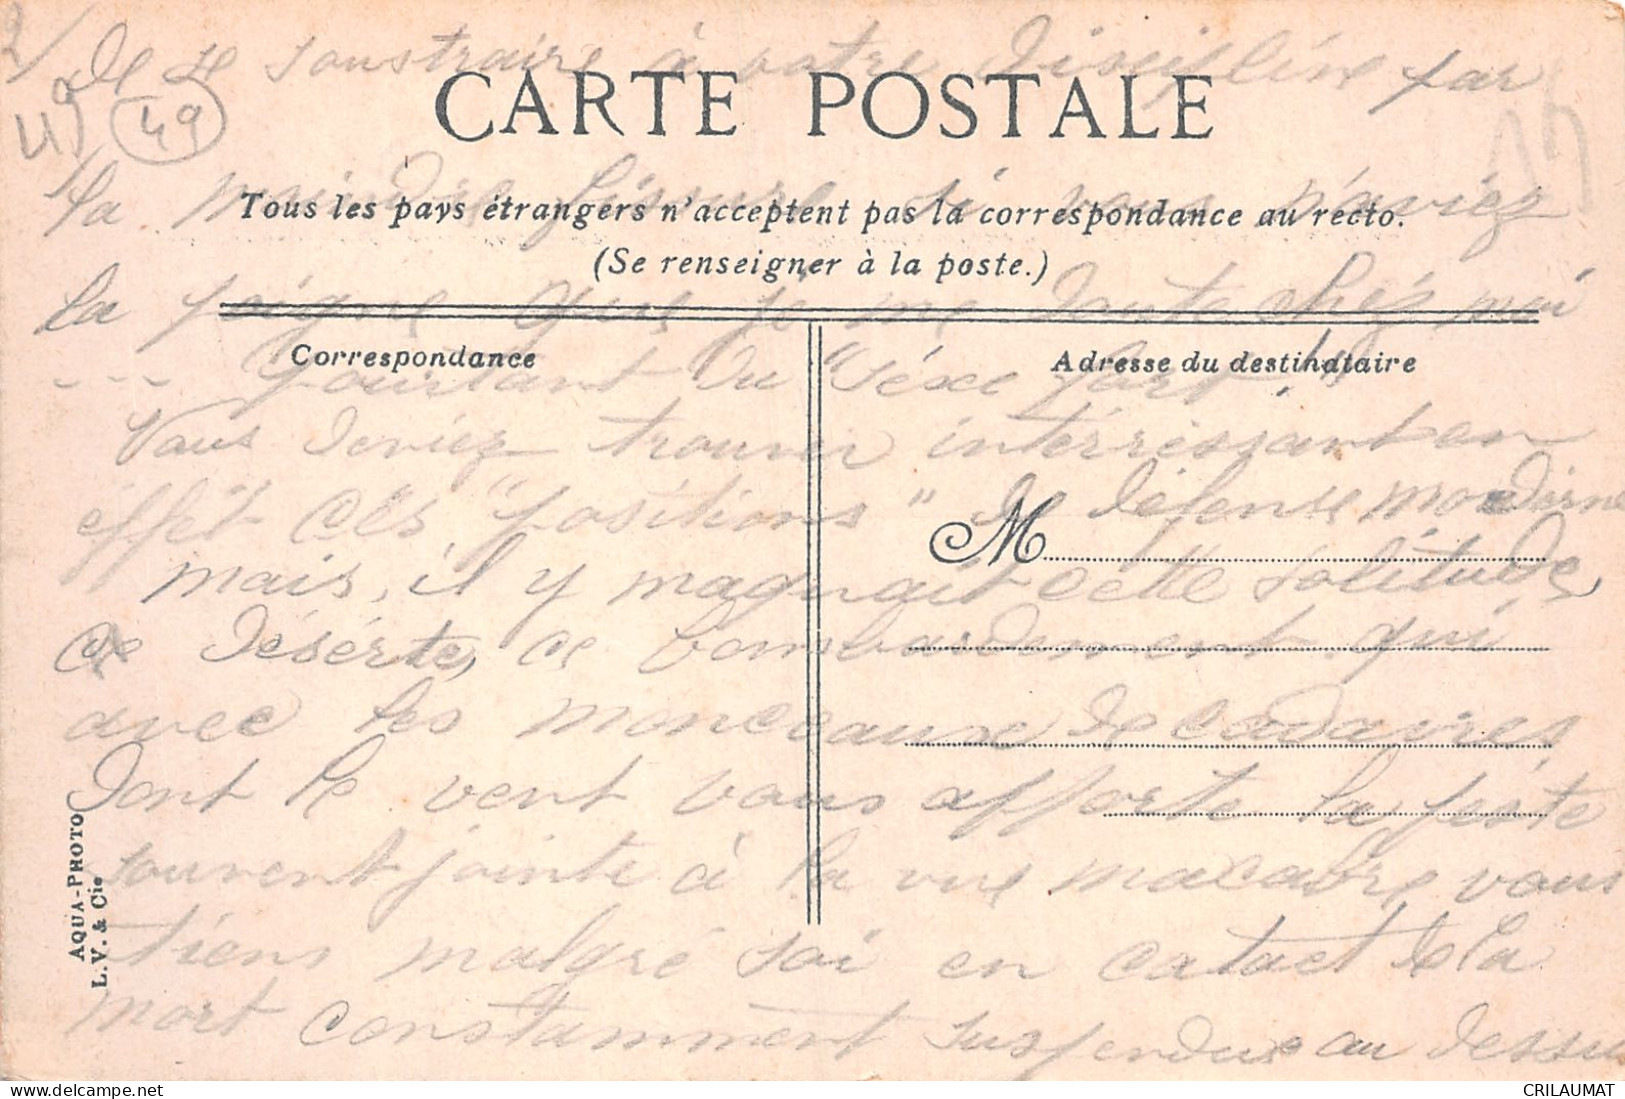 2/ de se soustraire à votre discipline par
49
CARTE POSTALE
la moindre fissure si vous n'aviez
Tous les pays étrangers n'acceptent pas la correspondance au recto.
(Se renseigner à la poste.)
la poigne que je me doute chez moi
Correspondance
Adresse du destinataire
--- pourtant du "séxe fort."
Vous deviez trouver intérréssant en
éffét ces "positions" de défense moderne
M
mais, il y magnait cette solitude,
ce déserte, ce bombardement qui
avec les monceaux de cadavres,
dont le vent vous apporte la peste
souvent jointe à la vue macabre vous
tiens malgré soi en catact de la
mort constamment suspendue au dessu
AQUA-PHOTO
L. V. & Cie
CRILAUMAT